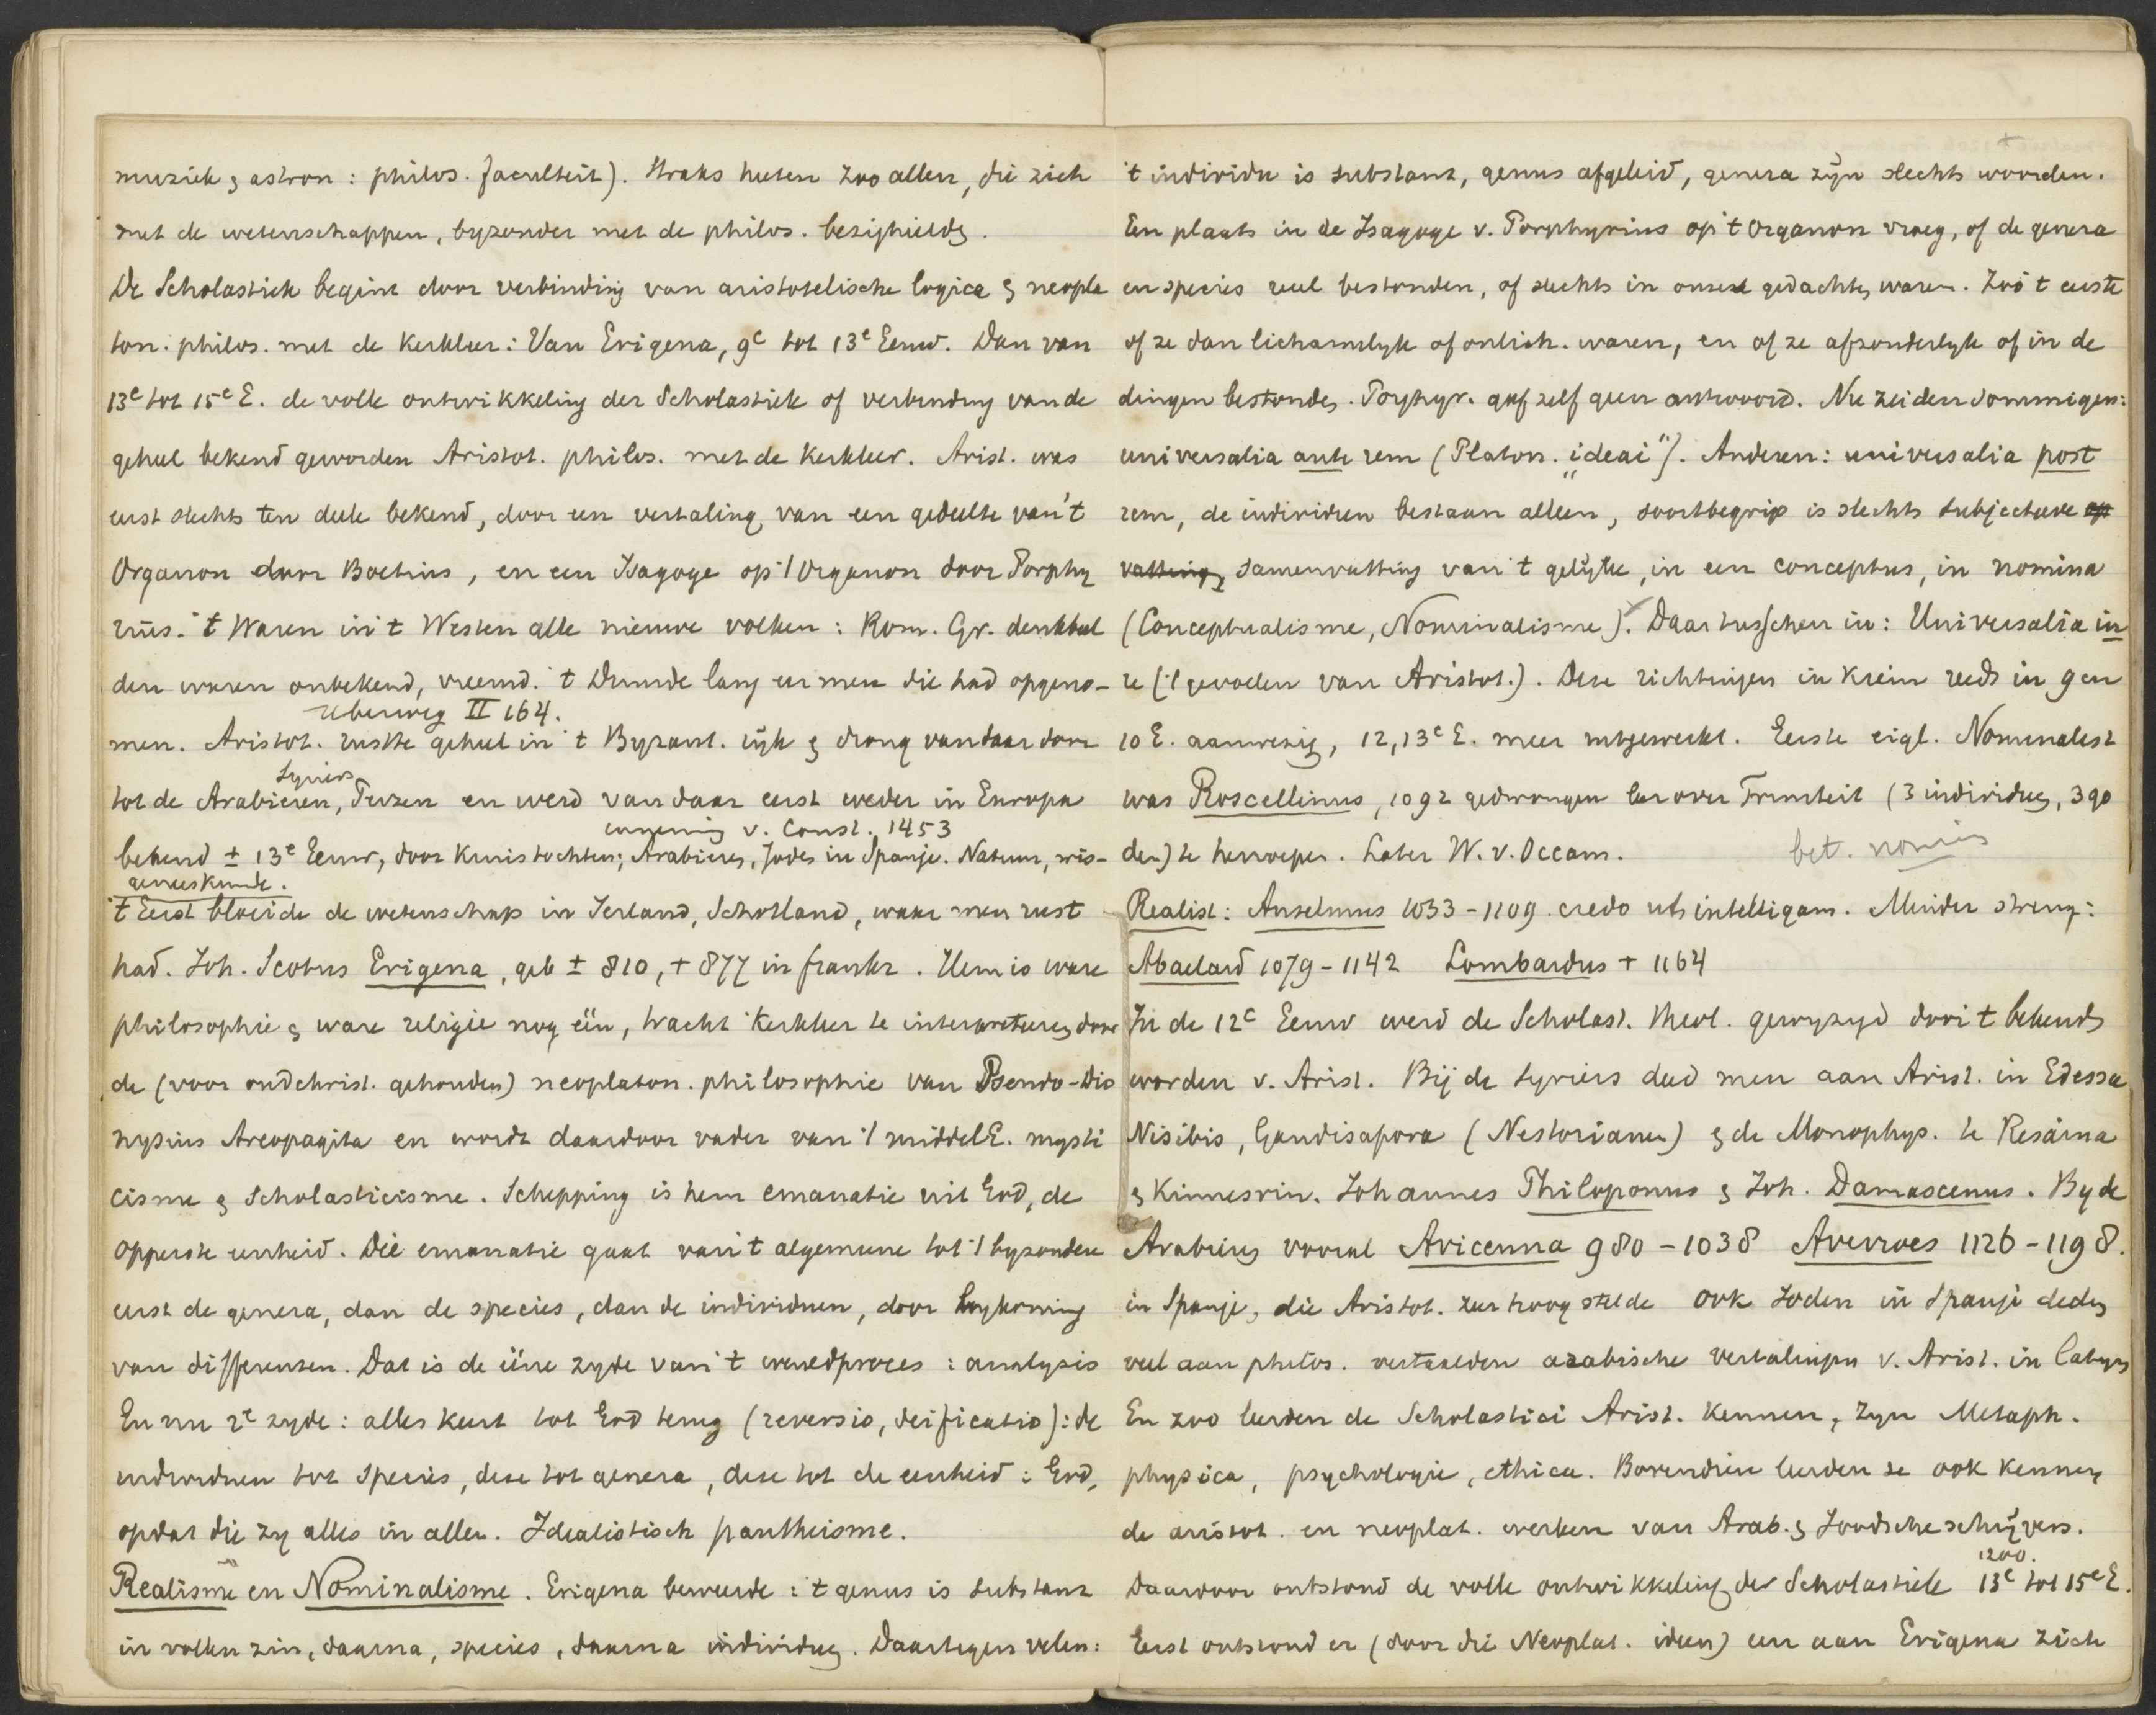 muziek & astron: philos. faculteit). Straks heten zoo allen, die zich
met de wetenschappen, byzonder met de philos. bezighielden.
De Scholastiek begint door verbinding van aristotelische logica & neopla
ton. philos. met de kerkleer: Van Erigena, 9e tot 13e Eeuw. Dan van
13e tot 15e E. de volle ontwikkeling der Scholastiek of verbinding van de
geheel bekend geworden Aristot. philos. met de kerkleer. Arist. was
eerst slechts ten deele bekend, door een vertaling van een gedeelte van 't
Organon door Boethius, en een Isagoge op 't Organon door Porphy
rius. 't Waren in 't Westen alle nieuwe volken: Rom. Gr. denkbeel
den waren onbekend, vreemd. 't Duurde lang eer men die had opgeno-
Ueberweg II 164.
men. Aristot. rustte geheel in 't Byzant. rijk & drong vandaar door
Syriers
tot de Arabieren, Perzen en werd vandaar eerst weder in Europa
inneming v. Const. 1453
bekend ± 13e Eeuw, door kruistochten; Arabieren, Joden in Spanje. Natuur, wis-
geneeskunde.
't Eerst bloeide de wetenschap in Ierland, Schotland, waar men rust
had. Joh. Scotus Erigena, geb ± 810, + 877 in frankr. Hem is ware
philosophie & ware religie nog één, tracht kerkleer te interpreteren door
de (voor oudchrist. gehouden) neoplaton. philosophie van Pseudo-Dio
nysius Areopagita en wordt daardoor vader van 't middelE. mysti
cisme & Scholasticisme. Schepping is hem emanatie uit God, de
opperste eenheid. Die emanatie gaat van 't algemeene tot 't byzondere
eerst de genera, dan de species, dan de individuen, door bykoming
van differenzen. Dat is de ééne zyde van 't wereldproces: analysis
En nu 2e zyde: alles keert tot God terug (reversio, deificatio): de
individuen tot species, deze tot genera, deze tot de eenheid: God,
opdat die zy alles in allen. Idealistisch pantheisme.
Realisme en Nominalisme. Erigena beweerde: 't genus is substanz
in vollen zin, daarna, species, daarna individuen. Daartegen velen:
't individu is substanz, genus afgeleid, genera zijn slechts woorden.
Een plaats in de Isagoge v. Porphyrius op 't Organon vroeg, of de genera
en species reëel bestonden, of slechts in onze gedachten waren. Zoo 't eerste
of ze dan lichamelyk of onlich. waren, en of ze afzonderlyk of in de
dingen bestonden. Porphyr. gaf zelf geen antwoord. Nu zeiden sommigen:
universalia ante rem (Platon. „ideai"). Anderen: universalia post
rem, de individuen bestaan alleen, soortbegrip is slechts subjectieve op
vatting, samenvatting van 't gelijke, in een conceptus, in nomina
(Conceptualisme, Nominalisme). Daartusschen in: Universalia in
re ('t gevoelen van Aristot.). Deze richtingen in kiem reeds in 9 en
10 E. aanwezig, 12, 13e E. meer uitgewerkt. Eerste eigl. Nominalist
was Roscellinus, 1092 gedwongen leer over Triniteit (3 individuen, 3 go
den) te herroepen. Later W. v. Occam.
bet. nomin
Realist: Anselmus 1033-1109. credo ut intelligam. Minder streng:
Abaelard 1079-1142 Lombardus + 1164
In de 12e Eeuw werd de Scholast. theol. gewyzigd door 't bekend
worden v. Arist. Bij de Syriers deed men aan Arist. in Edessa
Nisibis, Gandisapora (Nestorianen) & de Monophys. te Resaina
& Kinnesrin. Johannes Philoponus & Joh. Damascenus. By de
Arabieren vooral Avicenna 980-1038 Averroes 1126-1198.
in Spanje, die Aristot. zeer hoog stelde ook Joden in Spanje deden
veel aan philos. vertaalden arabische vertalingen v. Arist. in Latyn
En zoo leerden de Scholastici Arist. kennen, zyn Metaph.
physica, psychologie, ethica. Bovendien leerden ze ook kennen
de aristot. en neoplat. werken van Arab. & Joodsche schrijvers.
1200.
Daardoor ontstond de volle ontwikkeling der Scholastiek 13e tot 15e E.
Eerst ontstond er (door die Neoplat. ideen) een aan Erigena zich